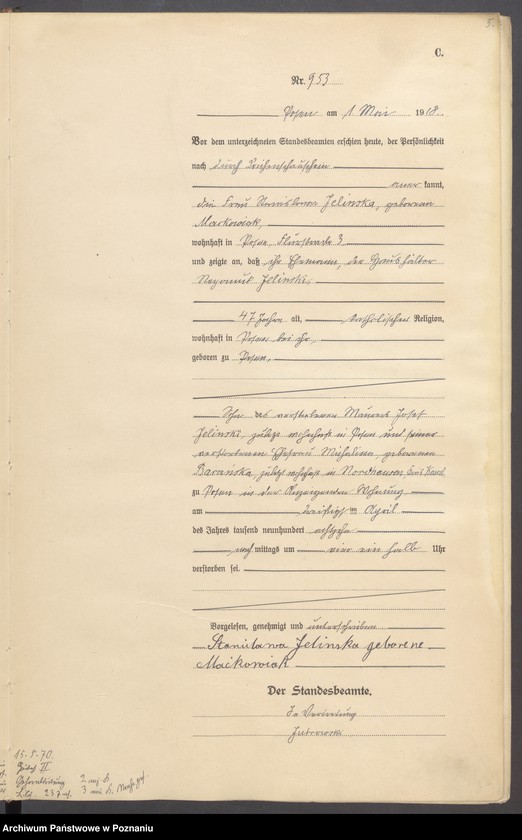 5.
C.
Nr. 953
Posen am 1 Mai 1918.
Vor dem unterzeichneten Standesbeamten erschien heute, der Persönlichkeit
nach durch Leichenschauschein
aner kannt,
die Frau Stanislawa Jelinska, geborene
Mackowiak,
wohnhaft in Posen, Flurstraße 3
und zeigte an, daß ihr Ehemann, der Haushälter
Nepomuk Jelinski,
47 Jahre alt, katholischer Religion,
wohnhaft in Posen bei ihr,
geboren zu Posen,
Sohn des verstorbenen Maurers Josef
Jelinski, zuletzt wohnhaft in Posen und seiner
verstorbenen Ehefrau Michalina geborenen
Barańska, zuletzt wohnhaft in Nordhausen,
zu Posen in der Wohnung
am dreißigsten April
des Jahres tausend neunhundert achtzehn
nach mittags um vier ein halb Uhr
verstorben sei.
Vorgelesen, genehmigt und unterschrieben
Stanisława Jelinska geborene
Maćkowiak
Der Standesbeamte.
In Vertretung
15. 5. 70.
Archiwum Państwowe w Poznaniu